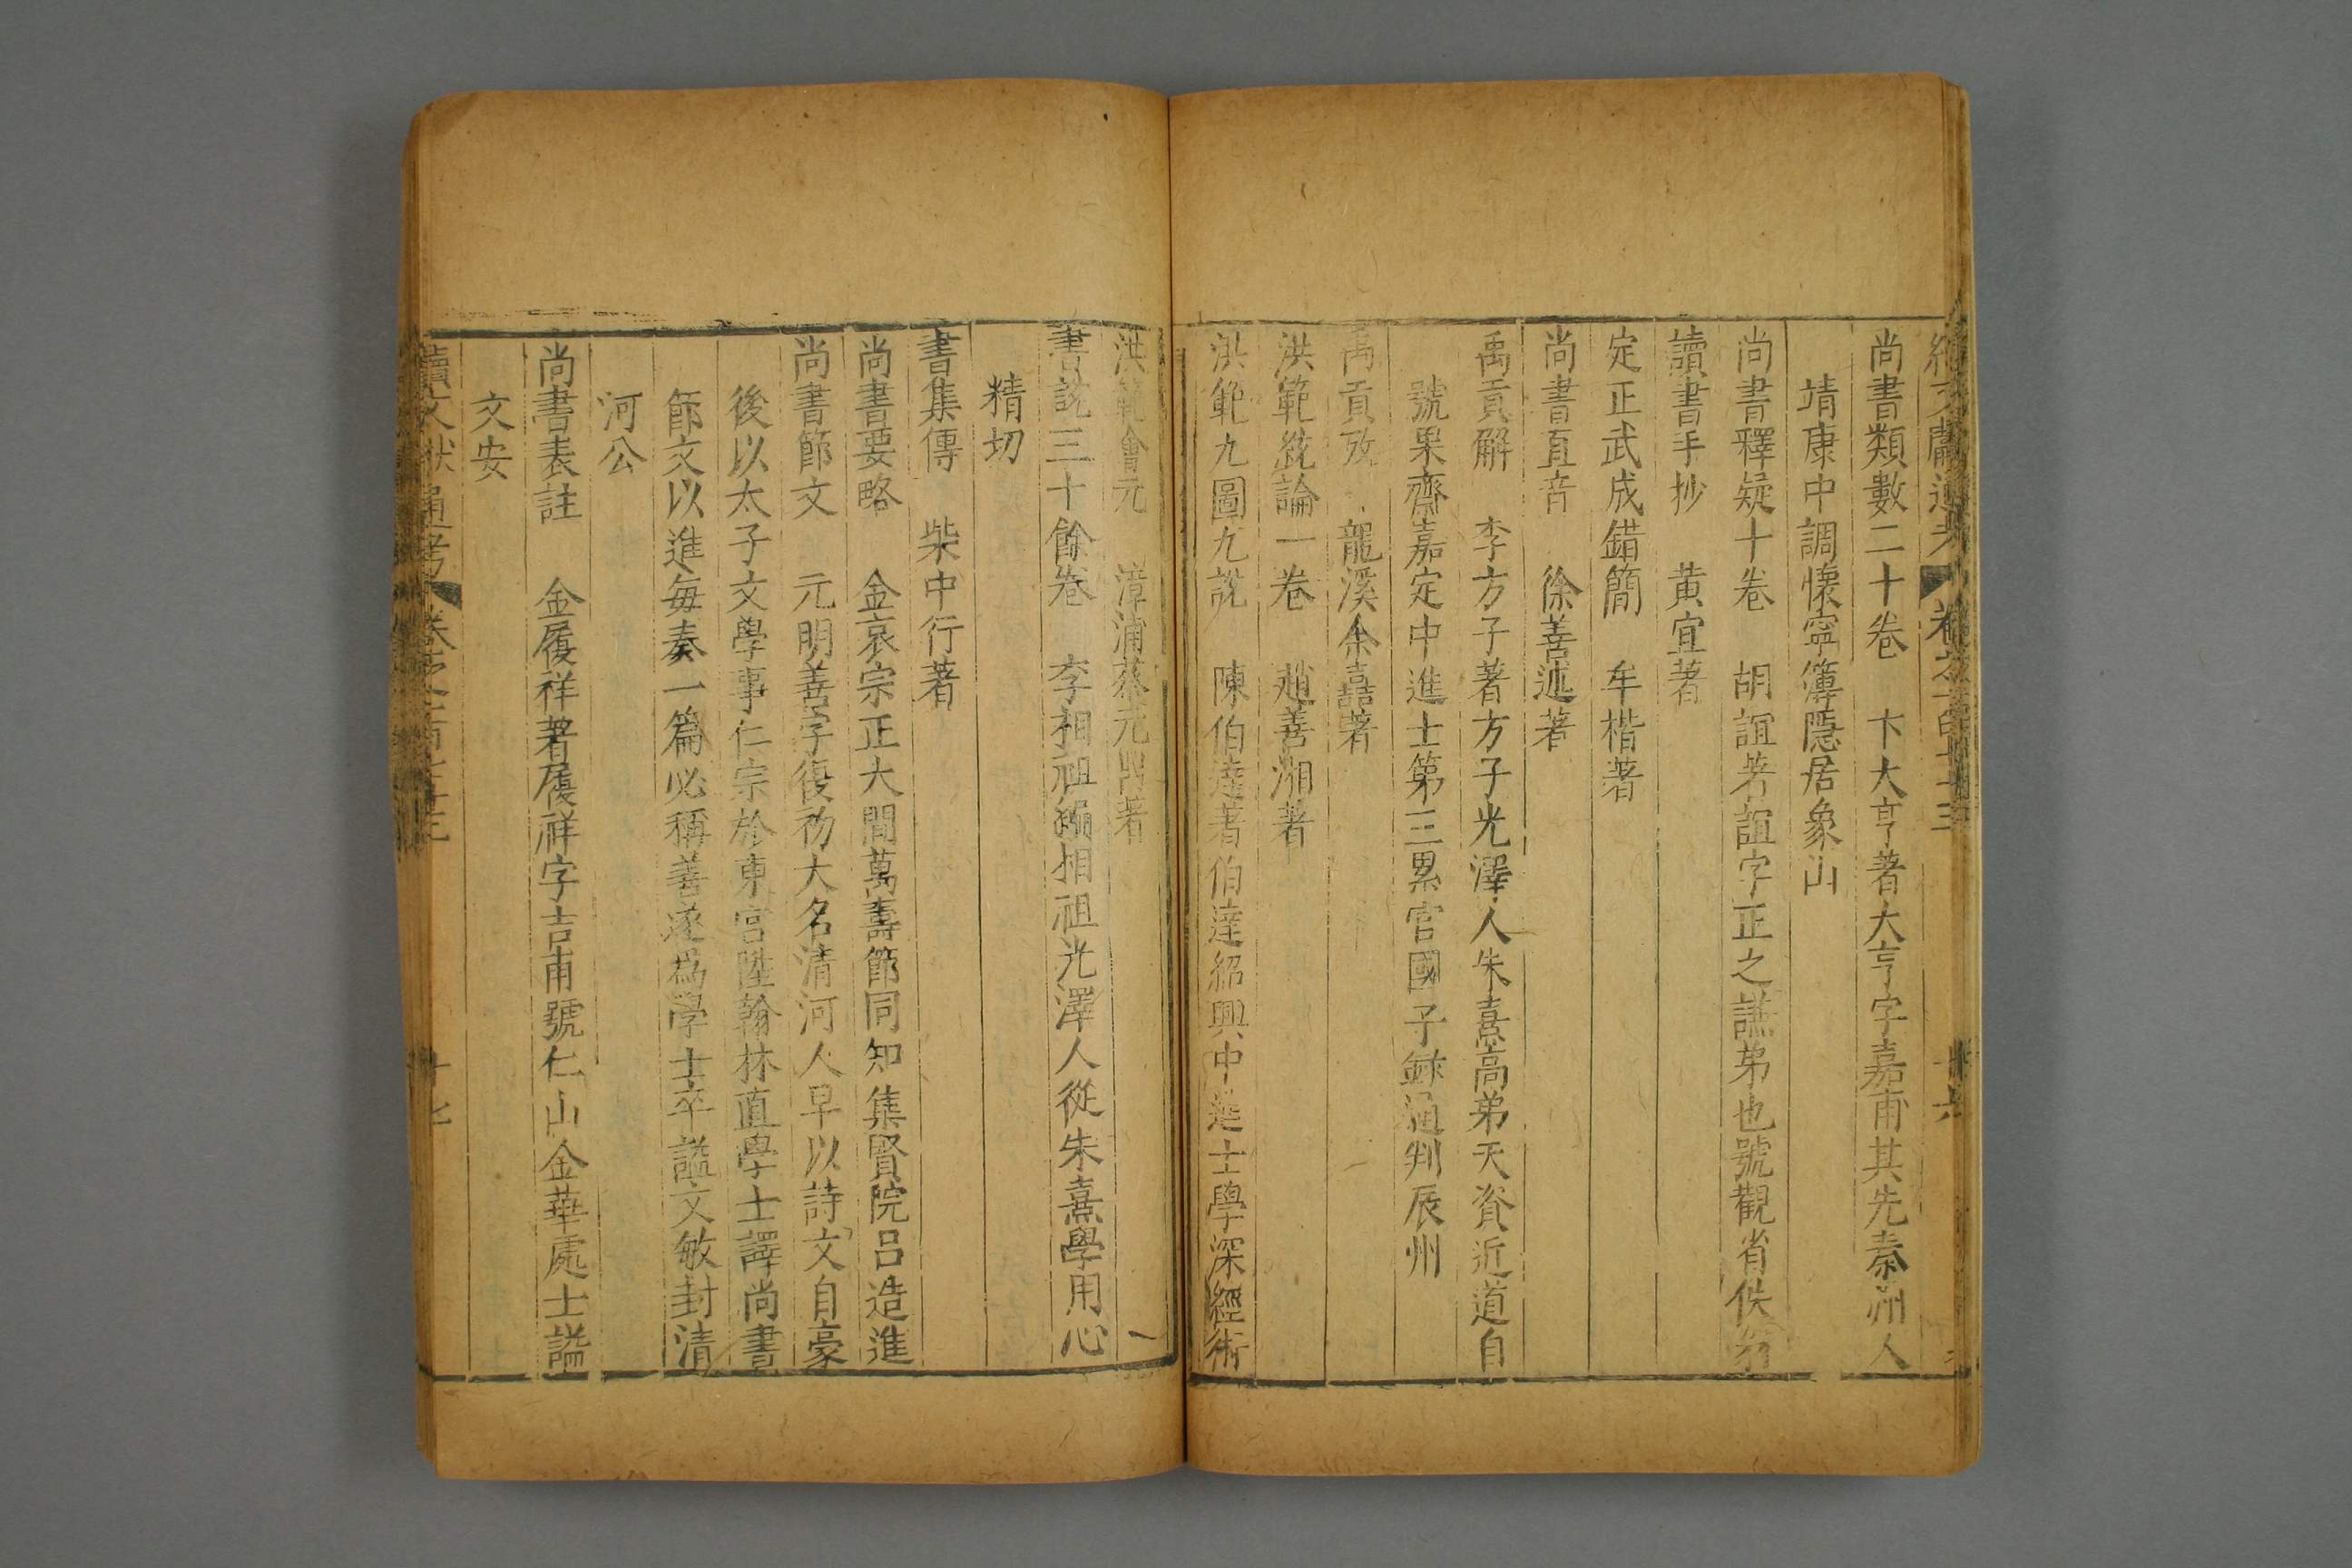 尚書類數二十卷　卞大亨著大亨字嘉甫其先泰州人
靖康中調懷寧簿隱居象山
尚書釋疑十卷　胡誼著誼字正之謙弟也號觀省佚翁
讀書手抄　黃宜著
定正武成錯簡　牟楷著
尚書直音　徐善述著
禹貢解　李方子著方子光澤人朱熹高弟天資近道自
號果齋嘉定中進士第三累官國子錄通判辰州
禹貢攷　龍溪余嚞著
洪範統論一卷　趙善湘著
洪範九圖九說　陳伯達著伯達紹興中進士學深經術
洪範會元　漳浦蔡元鼎著
書說三十餘卷　李相祖編相祖光澤人從朱熹學用心
精切
書集傳　柴中行著
尚書要略　金哀宗正大間萬壽節同知集賢院呂造進
尚書節文　元明善字復初大名清河人早以詩文自豪
後以太子文學事仁宗於東宮陞翰林直學士譯尚書
節文以進每奏一篇必稱善遂爲學士卒謚文敏封清
河公
尚書表註　金履祥著履祥字吉甫號仁山金華處士謚
文安
續文獻通考　卷之一百七十三　十七